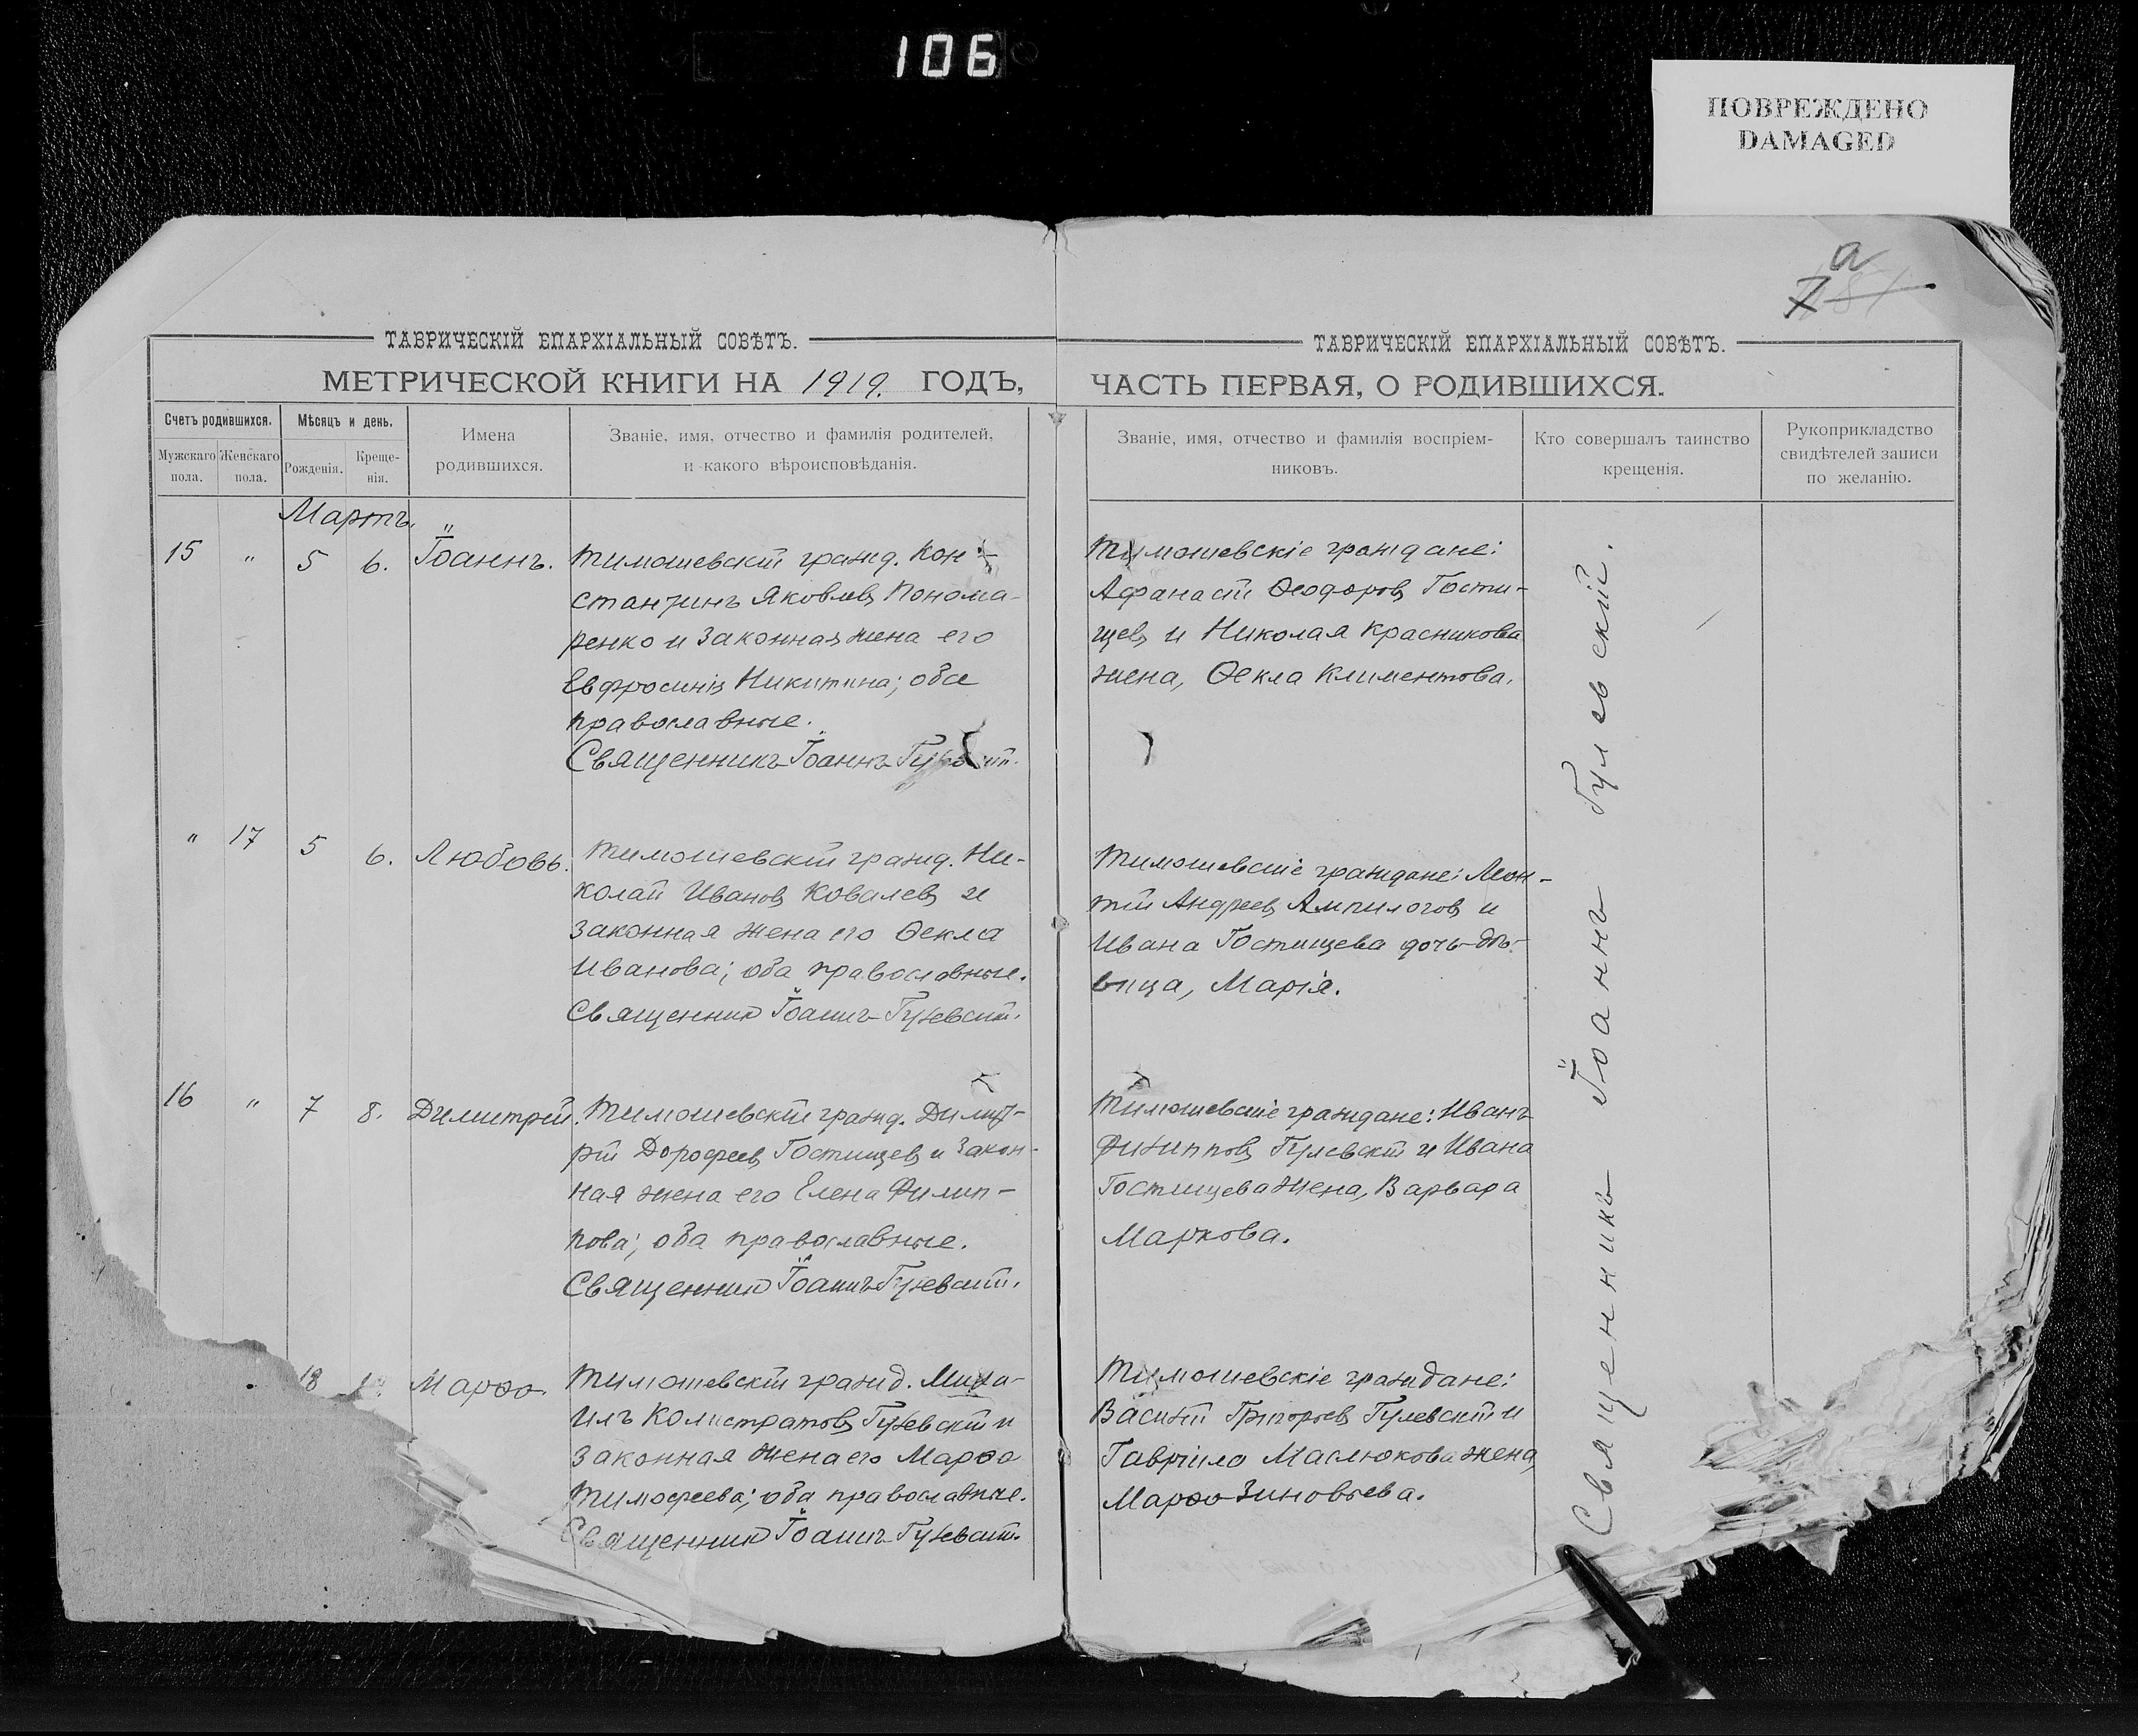 106
ПОВРЕЖДЕНО
DAMAGED
а
7
ТАВРИЧЕСКІЙ ЕПАРХІАЛЬНЫЙ СОВѢТЪ.
МЕТРИЧЕСКОЙ КНИГИ НА 1919. ГОДЪ,
Счетъ родившихся.
Мѣсяцъ и день.
Имена
родившихся.
Званіе, имя, отчество и фамилія родителей,
и какого вѣроисповѣданія.
Мужскаго
пола.
Женскаго
пола.
Рожденія.
Креще-
нія.
Мартъ.
15 " 5 6. Іоаннъ.
Тимошевскій гражд. Кон-
стантинъ Яковлевъ Понома-
ренко и законная жена его
Евфросинія Никитина; оба
православные.
Священникъ Іоаннъ Гулевскій.
" 17 5 6. Любовь.
Тимошевскій гражд. Ни-
колай Ивановъ Ковалевъ и
законная жена его Ѳекла
Иванова; оба православные.
Священникъ Іоаннъ Гулевскій.
16 " 7 8. Димитрій.
Тимошевскій гражд. Димит-
рій Дорофеевъ Гостищевъ и закон-
ная жена его Елена Филип-
пова; оба православные.
Священникъ Іоаннъ Гулевскій.
18 Марѳа
Тимошевскій гражд. Миха-
илъ Калистратовъ Гулевскій и
законная жена его Марѳа
Тимофеева; оба православные.
Священникъ Іоаннъ Гулевскій.
ТАВРИЧЕСКІЙ ЕПАРХІАЛЬНЫЙ СОВѢТЪ.
ЧАСТЬ ПЕРВАЯ, О РОДИВШИХСЯ.
Званіе, имя, отчество и фамилія воспріем-
никовъ.
Кто совершалъ таинство
крещенія.
Рукоприкладство
свидѣтелей записи
по желанію.
Тимошевскіе граждане:
Афанасій Ѳеодоровъ Гости-
щевъ и Николая Красникова
жена, Ѳекла Климентова.
Тимошевскіе граждане: Леон-
тій Андреевъ Ампилоговъ и
Ивана Гостищева дочь-дѣ-
вица, Марія.
Тимошевскіе граждане: Иванъ
Филипповъ Гулевскій и Ивана
Гостищева жена, Варвара
Маркова.
Тимошевскіе граждане:
Василій Григорьевъ Гулевскій и
Гавріила Маслюкова жена,
Марѳа Зиновьева.
Священникъ Іоаннъ Гулевскій.